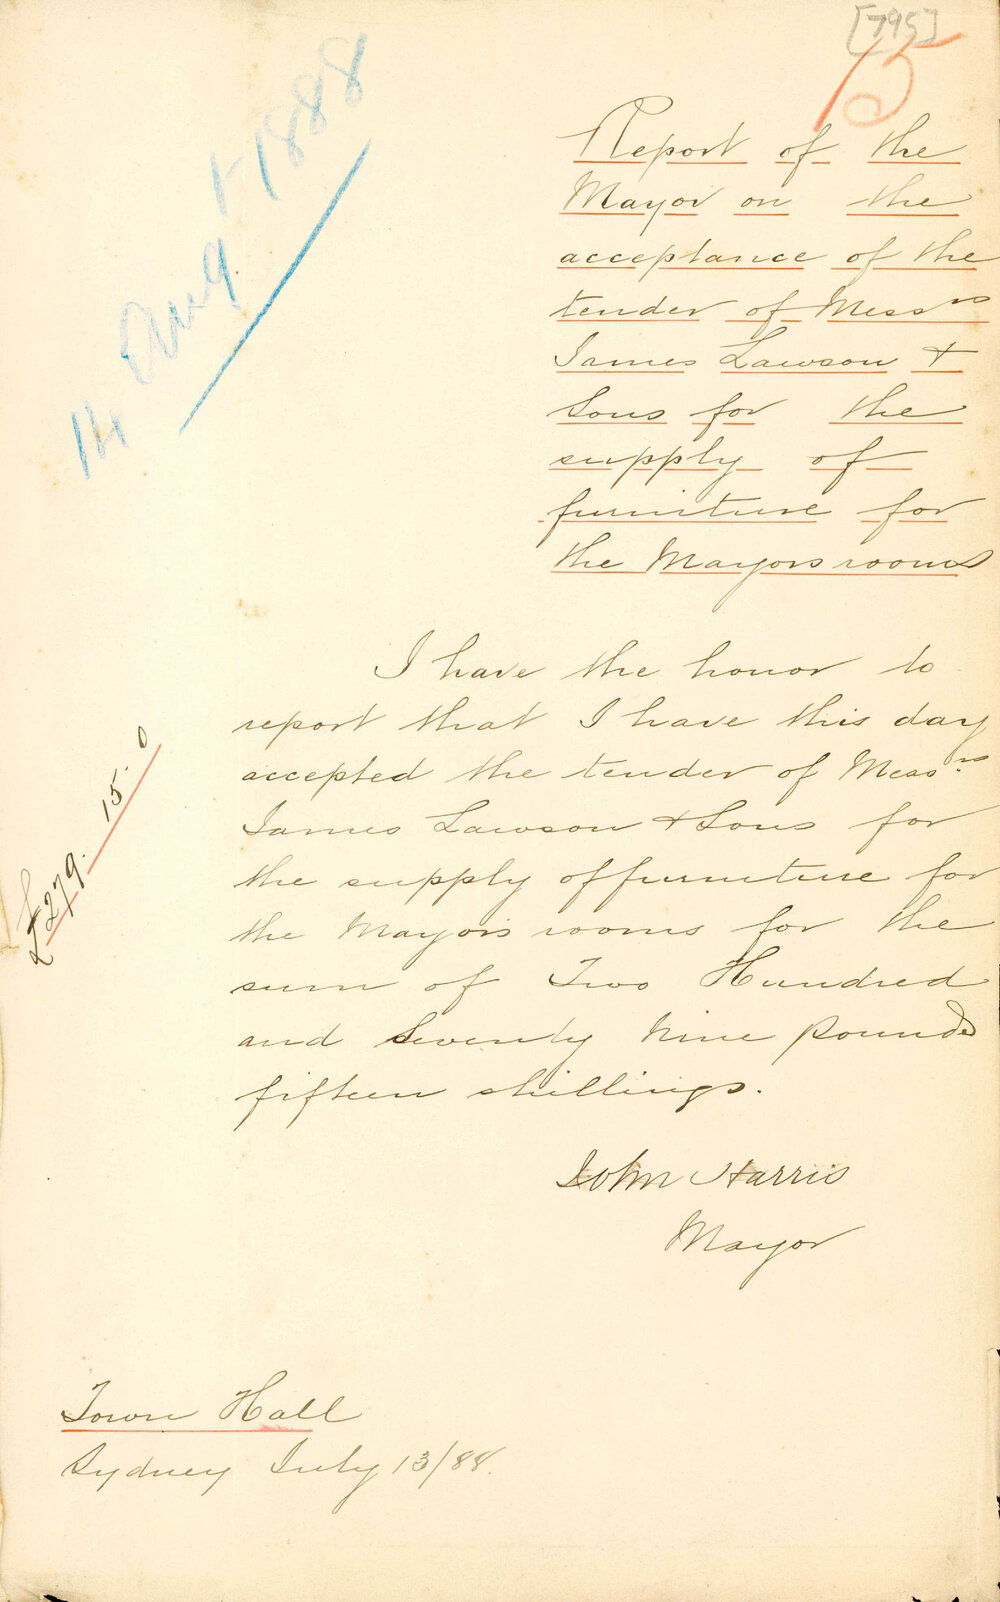 [795]
15
14 Augt 1888
Report of the
Mayor on the
acceptance of the
tender of Messrs
James Lawson +
Sons for the
supply of
furniture for
the Mayors rooms
I have the honor to
report that I have this day
accepted the tender of Messrs
James Lawson + Sons for
the supply of furniture for
the Mayors rooms for the
sum of Two Hundred
and Seventy Nine pounds
fifteen shillings.
£279. 15. 0
John Harris
Mayor
Town Hall
Sydney July 13/88.